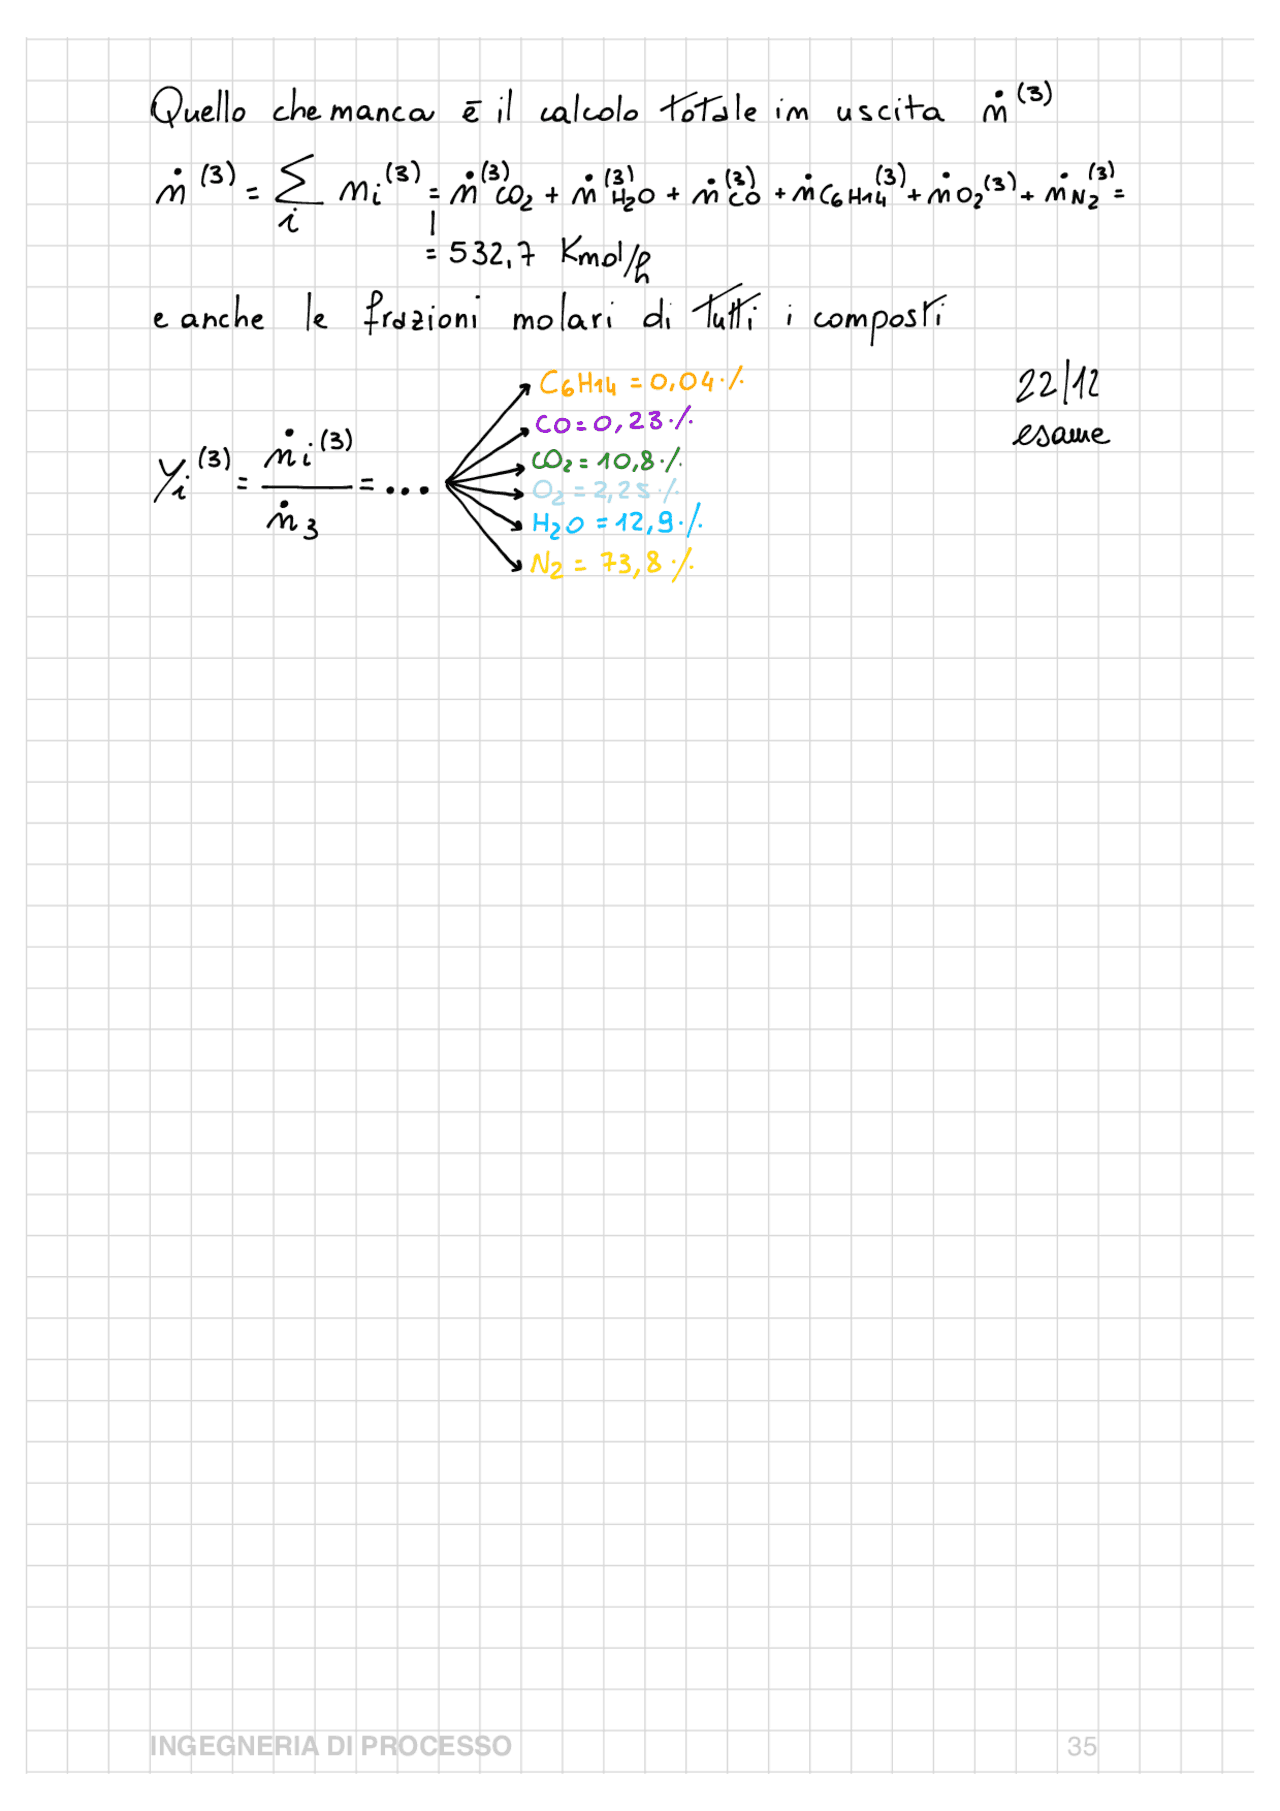 Quello che manca è il calcolo totale in uscita ṅ⁽³⁾
ṅ⁽³⁾ = Σᵢ ṅᵢ⁽³⁾ = ṅ⁽³⁾CO₂ + ṅ⁽³⁾H₂O + ṅ⁽³⁾CO + ṅC₆H₁₄⁽³⁾ + ṅO₂⁽³⁾ + ṅN₂⁽³⁾ =
= 532,7 Kmol/h
e anche le frazioni molari di tutti i composti
22/12
esame
Yᵢ⁽³⁾ = ṅᵢ⁽³⁾ / ṅ₃ = ...
C₆H₁₄ = 0,04 %
CO = 0,23 %
CO₂ = 10,8 %
O₂ = 2,25 %
H₂O = 12,9 %
N₂ = 73,8 %
INGEGNERIA DI PROCESSO
35